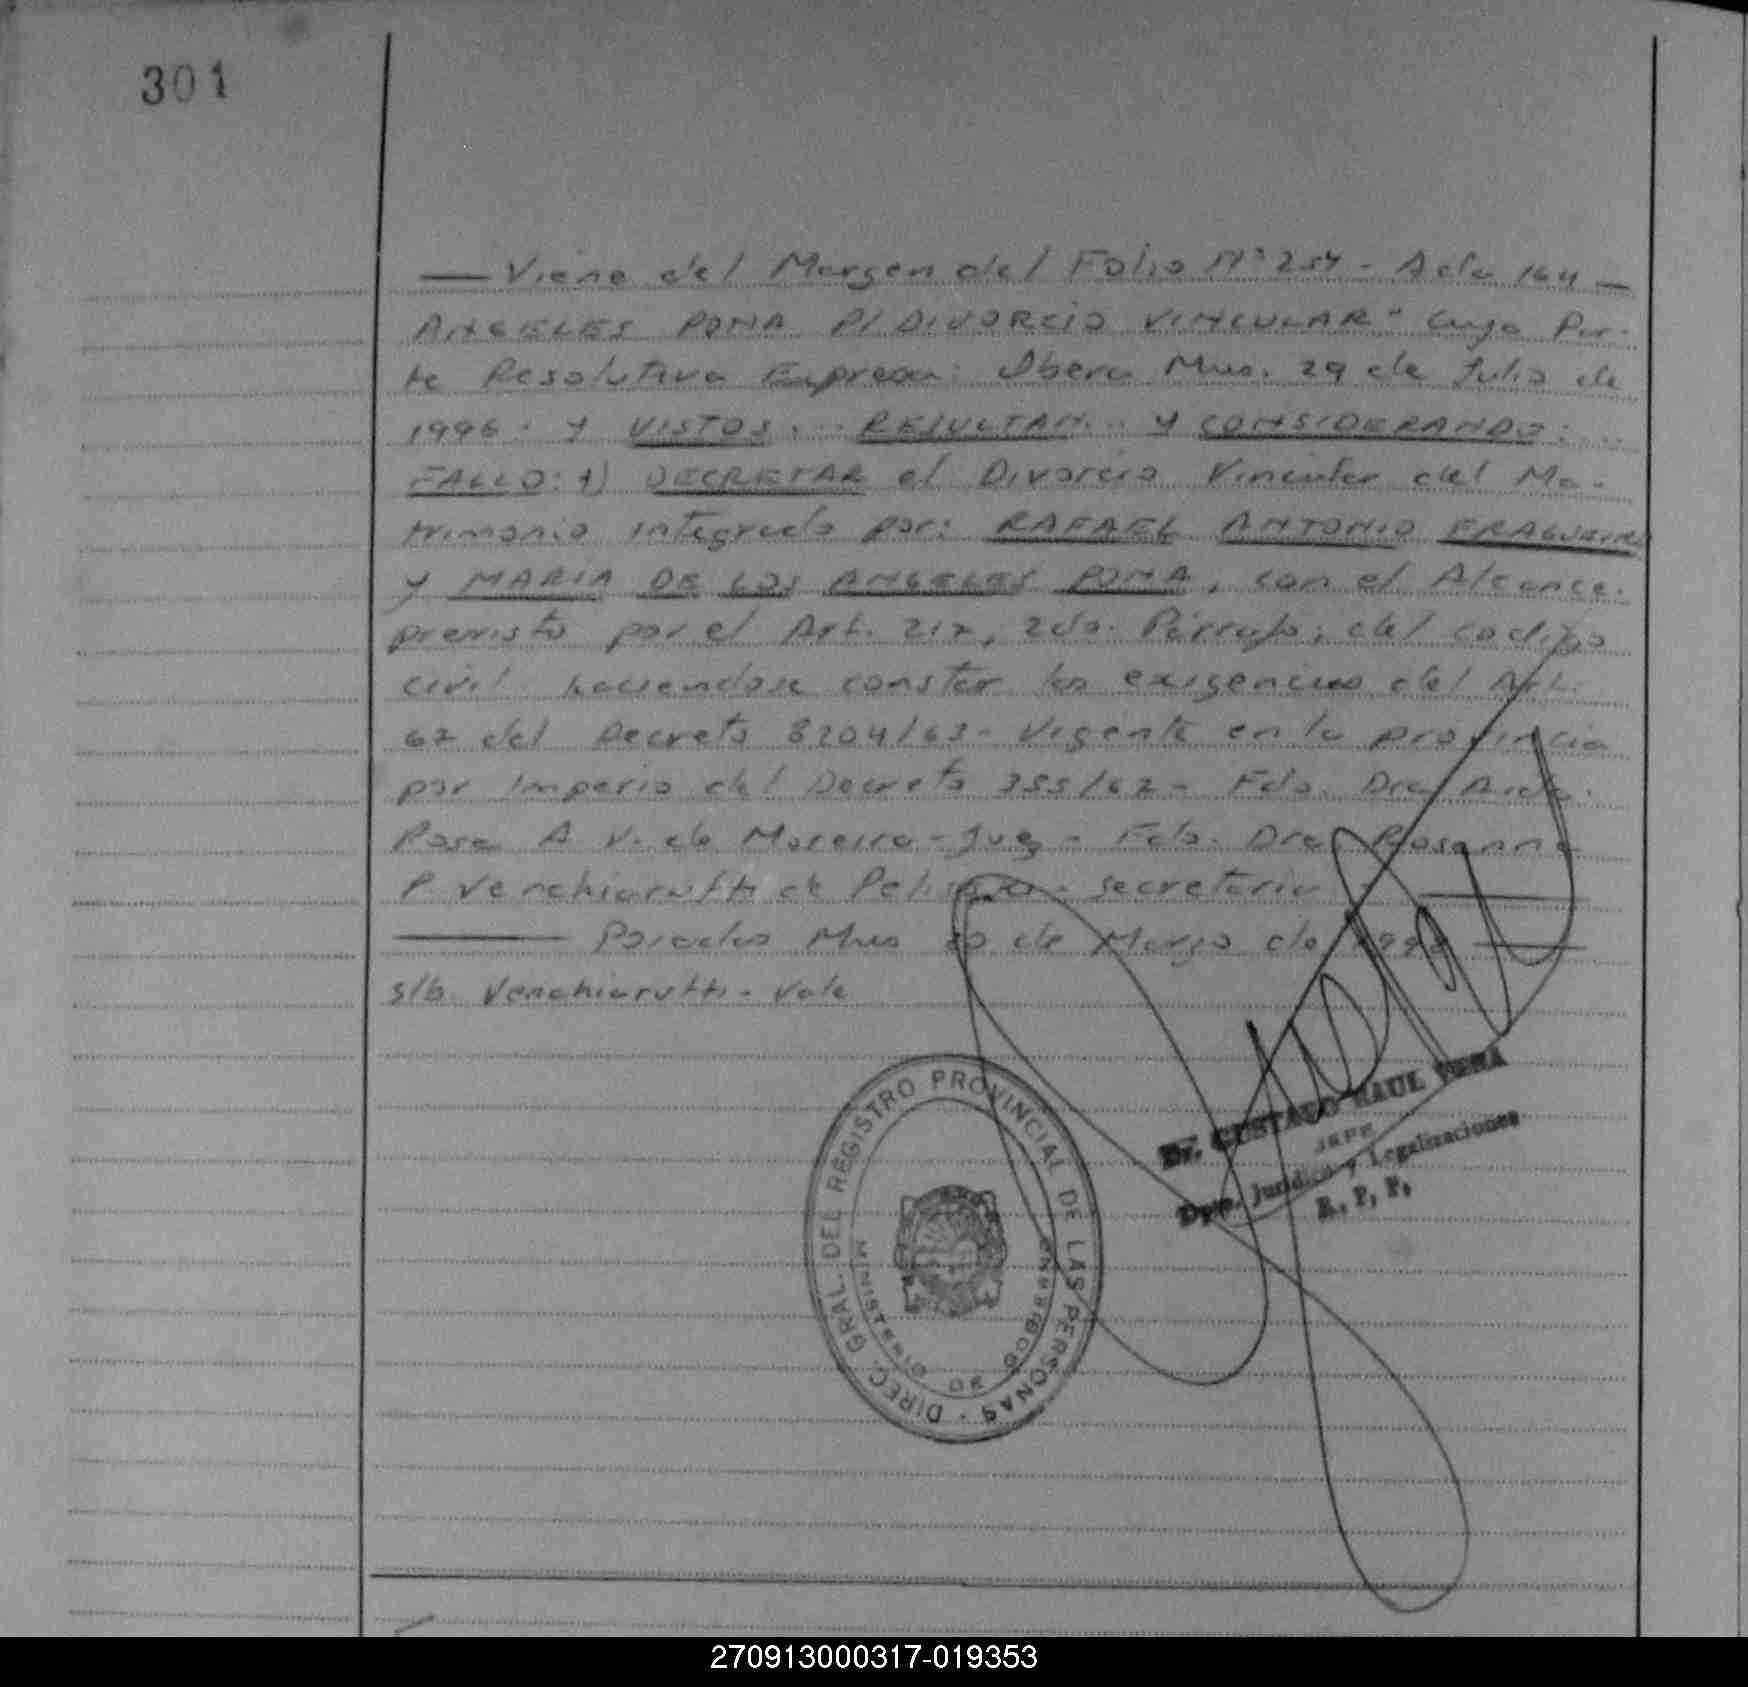 301
— Viene del Margen del Folio Nº 254 - Acta 164 —
ANGELES POMA P/ DIVORCIO VINCULAR" cuya Par-
te Resolutiva Expresa: Obera Mnes. 29 de Julio de
1996. Y VISTOS: RESULTAN: Y CONSIDERANDO:
FALLO: 1) DECRETAR el Divorcio Vincular del Ma-
trimonio integrado por: RAFAEL ANTONIO
y MARIA DE LOS ANGELES POMA, con el Alcance
previsto por el Art. 217, 2do. Párrafo, del codigo
civil haciendose constar las exigencias del Art.
67 del Decreto 8204/63- Vigente en la provincia
por Imperio del Decreto 355/67- Fdo. Dra.
Rosa A V. de Moreira - Juez - Fdo. Dra. Rosanna
P Venchiarutti de - secretaria -
Posadas Mnes de Marzo de 1998
s/b Venchiarutti - Vale
DIREC. GRAL. DEL REGISTRO PROVINCIAL DE LAS PERSONAS
MINISTERIO DE GOBIERNO
Dr. GUSTAVO RAUL VERA
JEFE
Dpto. Jurídico y Legalizaciones
R. P. P.
270913000317-019353